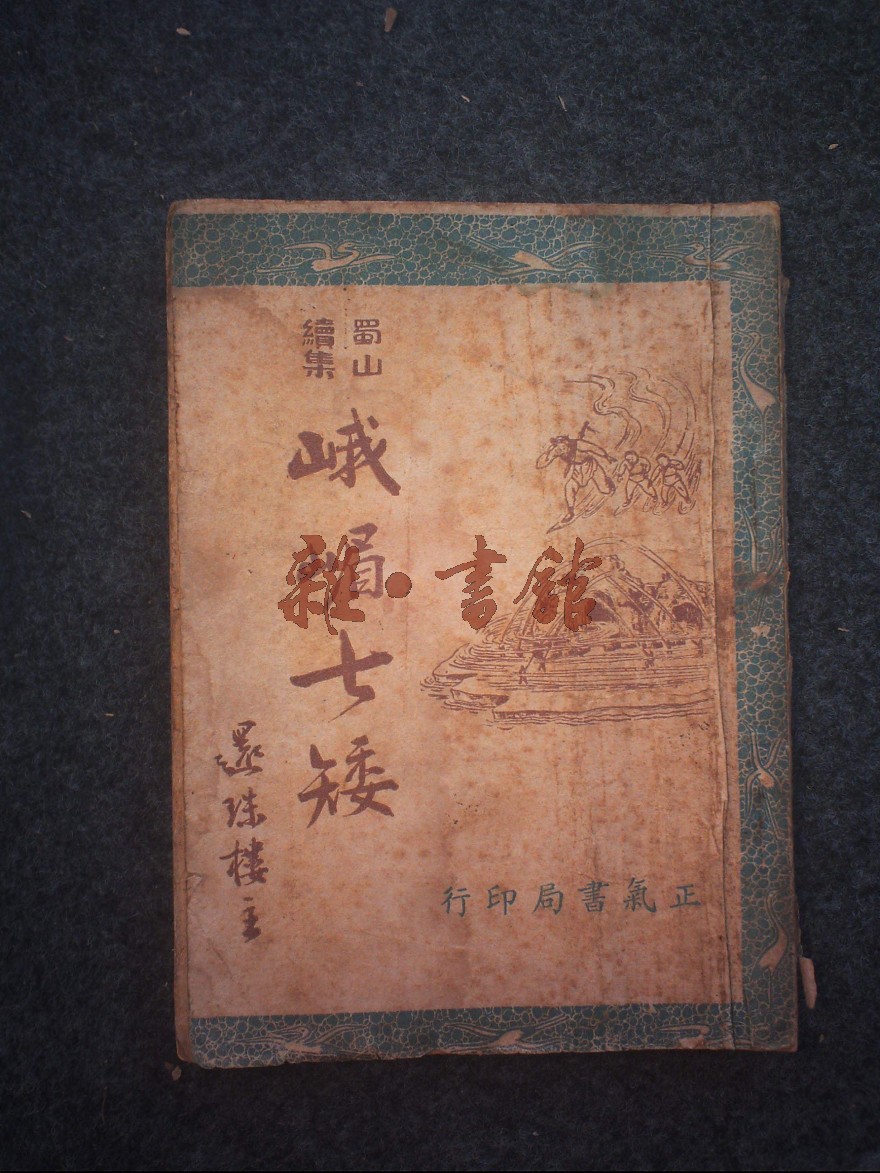 蜀山
續集
峨嵋七矮
還珠樓主
正氣書局印行
雜·書館